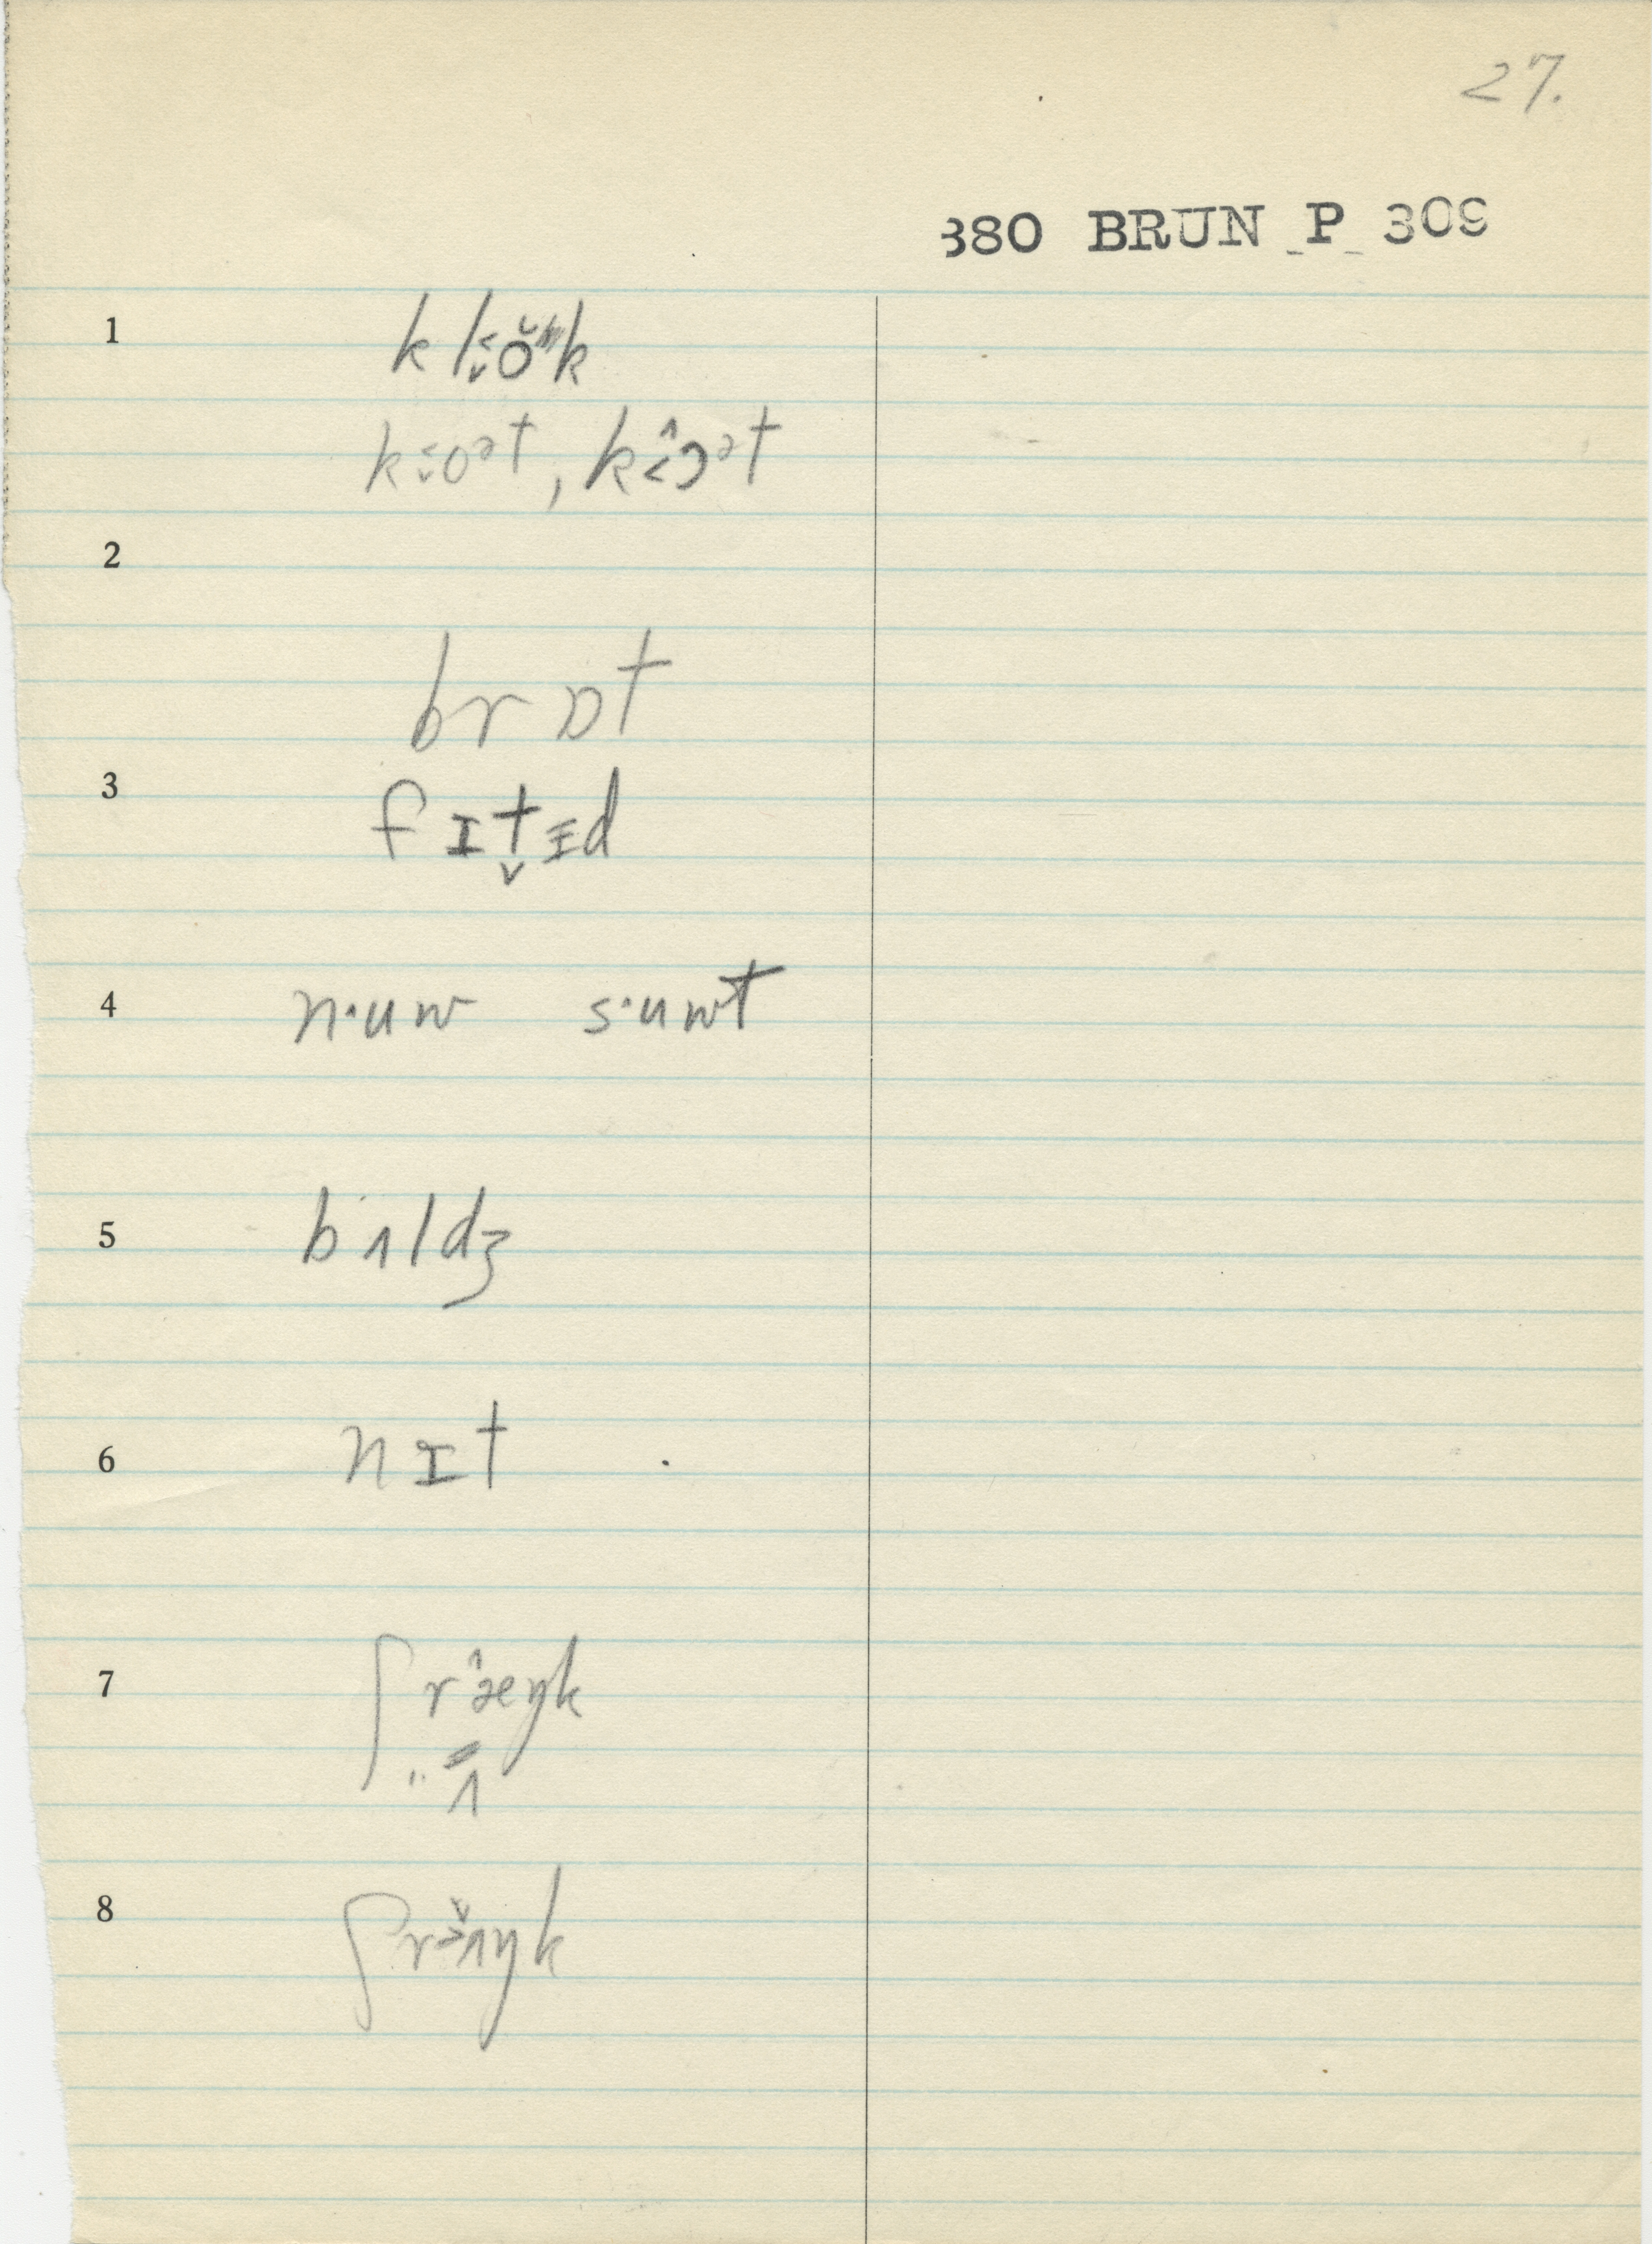 27.
380 BRUN P 309
1 kl o̬˂̆k
ko̬˂ᵊt, kɔ̭˂ᵊt
2
brɒt
3 fɪt̬ɪd
4 n·uw s·uwt
5 bʌldʒ
6 nɪt
7 ʃræ̂ŋk
ʌ
8 ʃrʌ̬˃ŋk